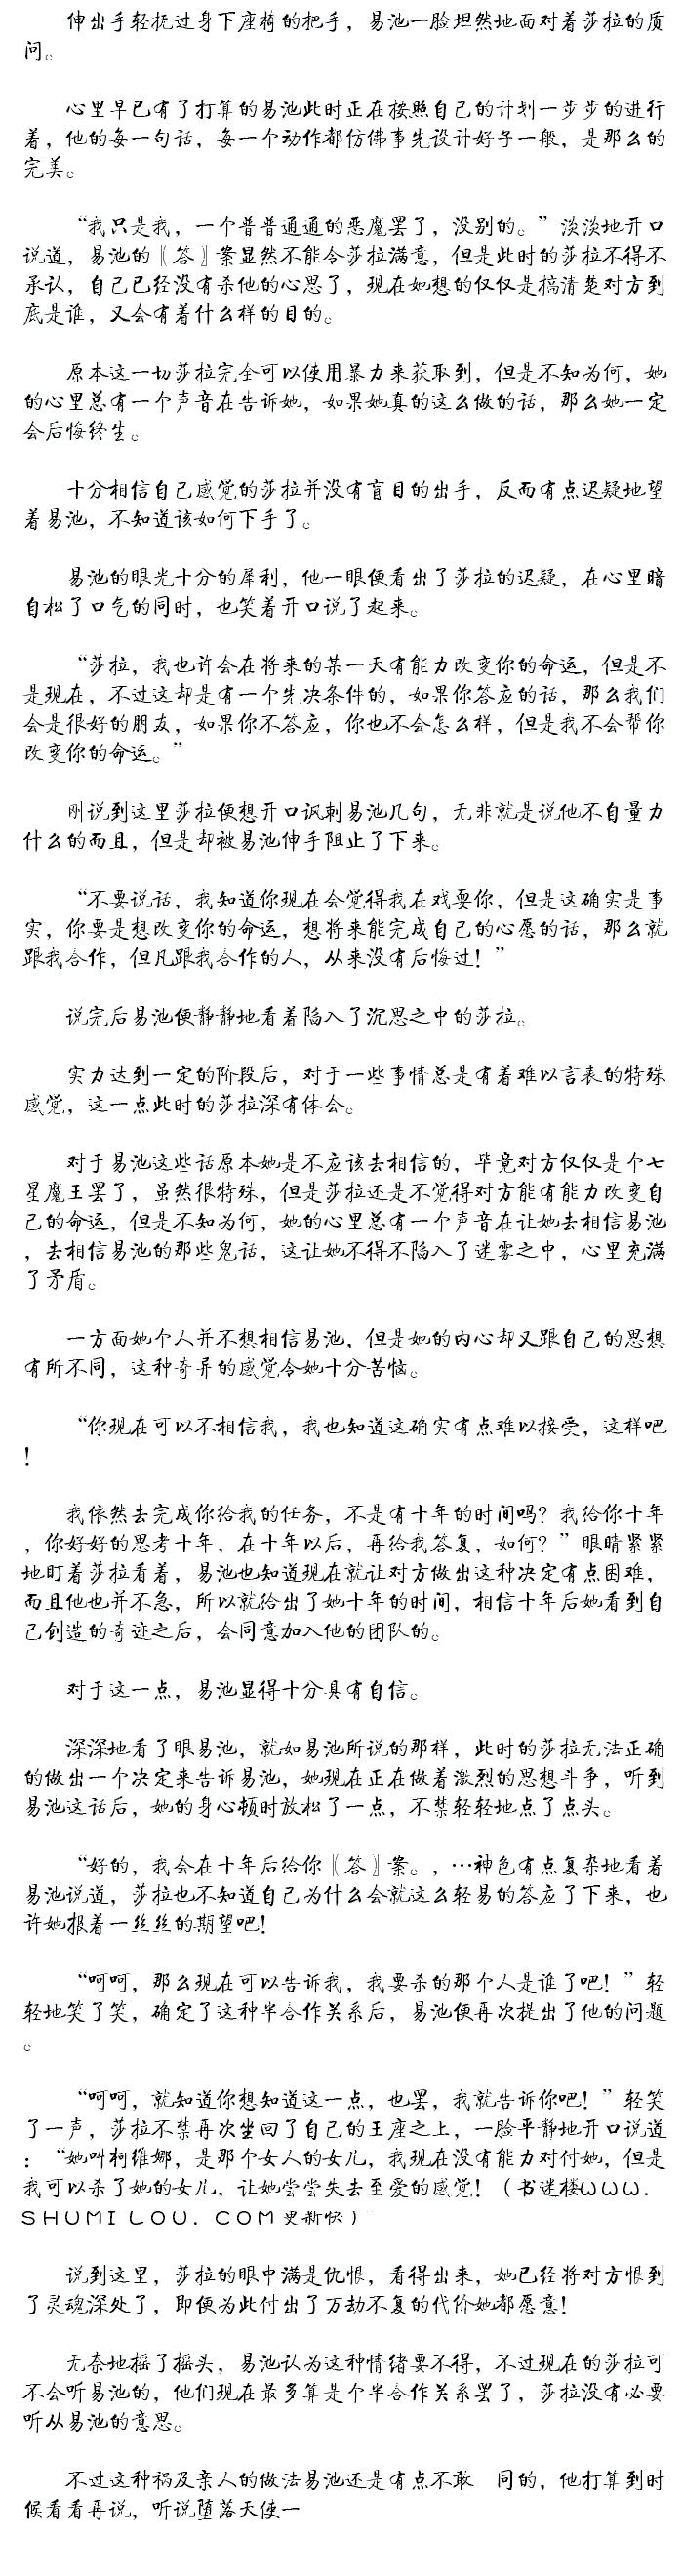 伸出手轻抚过身下座椅的把手，易池一脸坦然地面对着莎拉的质
问。
心里早已有了打算的易池此时正在按照自己的计划一步步的进行
着，他的每一句话，每一个动作都仿佛事先设计好了一般，是那么的
完美。
“我只是我，一个普普通通的恶魔罢了，没别的。”淡淡地开口
说道，易池的〖答〗案显然不能令莎拉满意，但是此时的莎拉不得不
承认，自己已经没有杀他的心思了，现在她想的仅仅是搞清楚对方到
底是谁，又会有着什么样的目的。
原本这一切莎拉完全可以使用暴力来获取到，但是不知为何，她
的心里总有一个声音在告诉她，如果她真的这么做的话，那么她一定
会后悔终生。
十分相信自己感觉的莎拉并没有盲目的出手，反而有点迟疑地望
着易池，不知道该如何下手了。
易池的眼光十分的犀利，他一眼便看出了莎拉的迟疑，在心里暗
自松了口气的同时，也笑着开口说了起来。
“莎拉，我也许会在将来的某一天有能力改变你的命运，但是不
是现在，不过这却是有一个先决条件的，如果你答应的话，那么我们
会是很好的朋友，如果你不答应，你也不会怎么样，但是我不会帮你
改变你的命运。”
刚说到这里莎拉便想开口讽刺易池几句，无非就是说他不自量力
什么的而且，但是却被易池伸手阻止了下来。
“不要说话，我知道你现在会觉得我在戏耍你，但是这确实是事
实，你要是想改变你的命运，想将来能完成自己的心愿的话，那么就
跟我合作，但凡跟我合作的人，从来没有后悔过！”
说完后易池便静静地看着陷入了沉思之中的莎拉。
实力达到一定的阶段后，对于一些事情总是有着难以言表的特殊
感觉，这一点此时的莎拉深有体会。
对于易池这些话原本她是不应该去相信的，毕竟对方仅仅是个七
星魔王罢了，虽然很特殊，但是莎拉还是不觉得对方能有能力改变自
己的命运，但是不知为何，她的心里总有一个声音在让她去相信易池
，去相信易池的那些鬼话，这让她不得不陷入了迷雾之中，心里充满
了矛盾。
一方面她个人并不想相信易池，但是她的内心却又跟自己的思想
有所不同，这种奇异的感觉令她十分苦恼。
“你现在可以不相信我，我也知道这确实有点难以接受，这样吧
！
我依然去完成你给我的任务，不是有十年的时间吗？我给你十年
，你好好的思考十年，在十年以后，再给我答复，如何？”眼睛紧紧
地盯着莎拉看着，易池也知道现在就让对方做出这种决定有点困难，
而且他也并不急，所以就给出了她十年的时间，相信十年后她看到自
己创造的奇迹之后，会同意加入他的团队的。
对于这一点，易池显得十分具有自信。
深深地看了眼易池，就如易池所说的那样，此时的莎拉无法正确
的做出一个决定来告诉易池，她现在正在做着激烈的思想斗争，听到
易池这话后，她的身心顿时放松了一点，不禁轻轻地点了点头。
“好的，我会在十年后给你〖答〗案。，…神色有点复杂地看着
易池说道，莎拉也不知道自己为什么会就这么轻易的答应了下来，也
许她报着一丝丝的期望吧！
“呵呵，那么现在可以告诉我，我要杀的那个人是谁了吧！”轻
轻地笑了笑，确定了这种半合作关系后，易池便再次提出了他的问题
。
“呵呵，就知道你想知道这一点，也罢，我就告诉你吧！”轻笑
了一声，莎拉不禁再次坐回了自己的王座之上，一脸平静地开口说道
：“她叫柯维娜，是那个女人的女儿，我现在没有能力对付她，但是
我可以杀了她的女儿，让她尝尝失去至爱的感觉！（书迷楼ＷＷＷ．
ＳＨＵＭＩＬＯＵ．ＣＯＭ更新快）
说到这里，莎拉的眼中满是仇恨，看得出来，她已经将对方恨到
了灵魂深处了，即便为此付出了万劫不复的代价她都愿意！
无奈地摇了摇头，易池认为这种情绪要不得，不过现在的莎拉可
不会听易池的，他们现在最多算是个半合作关系罢了，莎拉没有必要
听从易池的意思。
不过这种祸及亲人的做法易池还是有点不敢　同的，他打算到时
候看看再说，听说堕落天使一